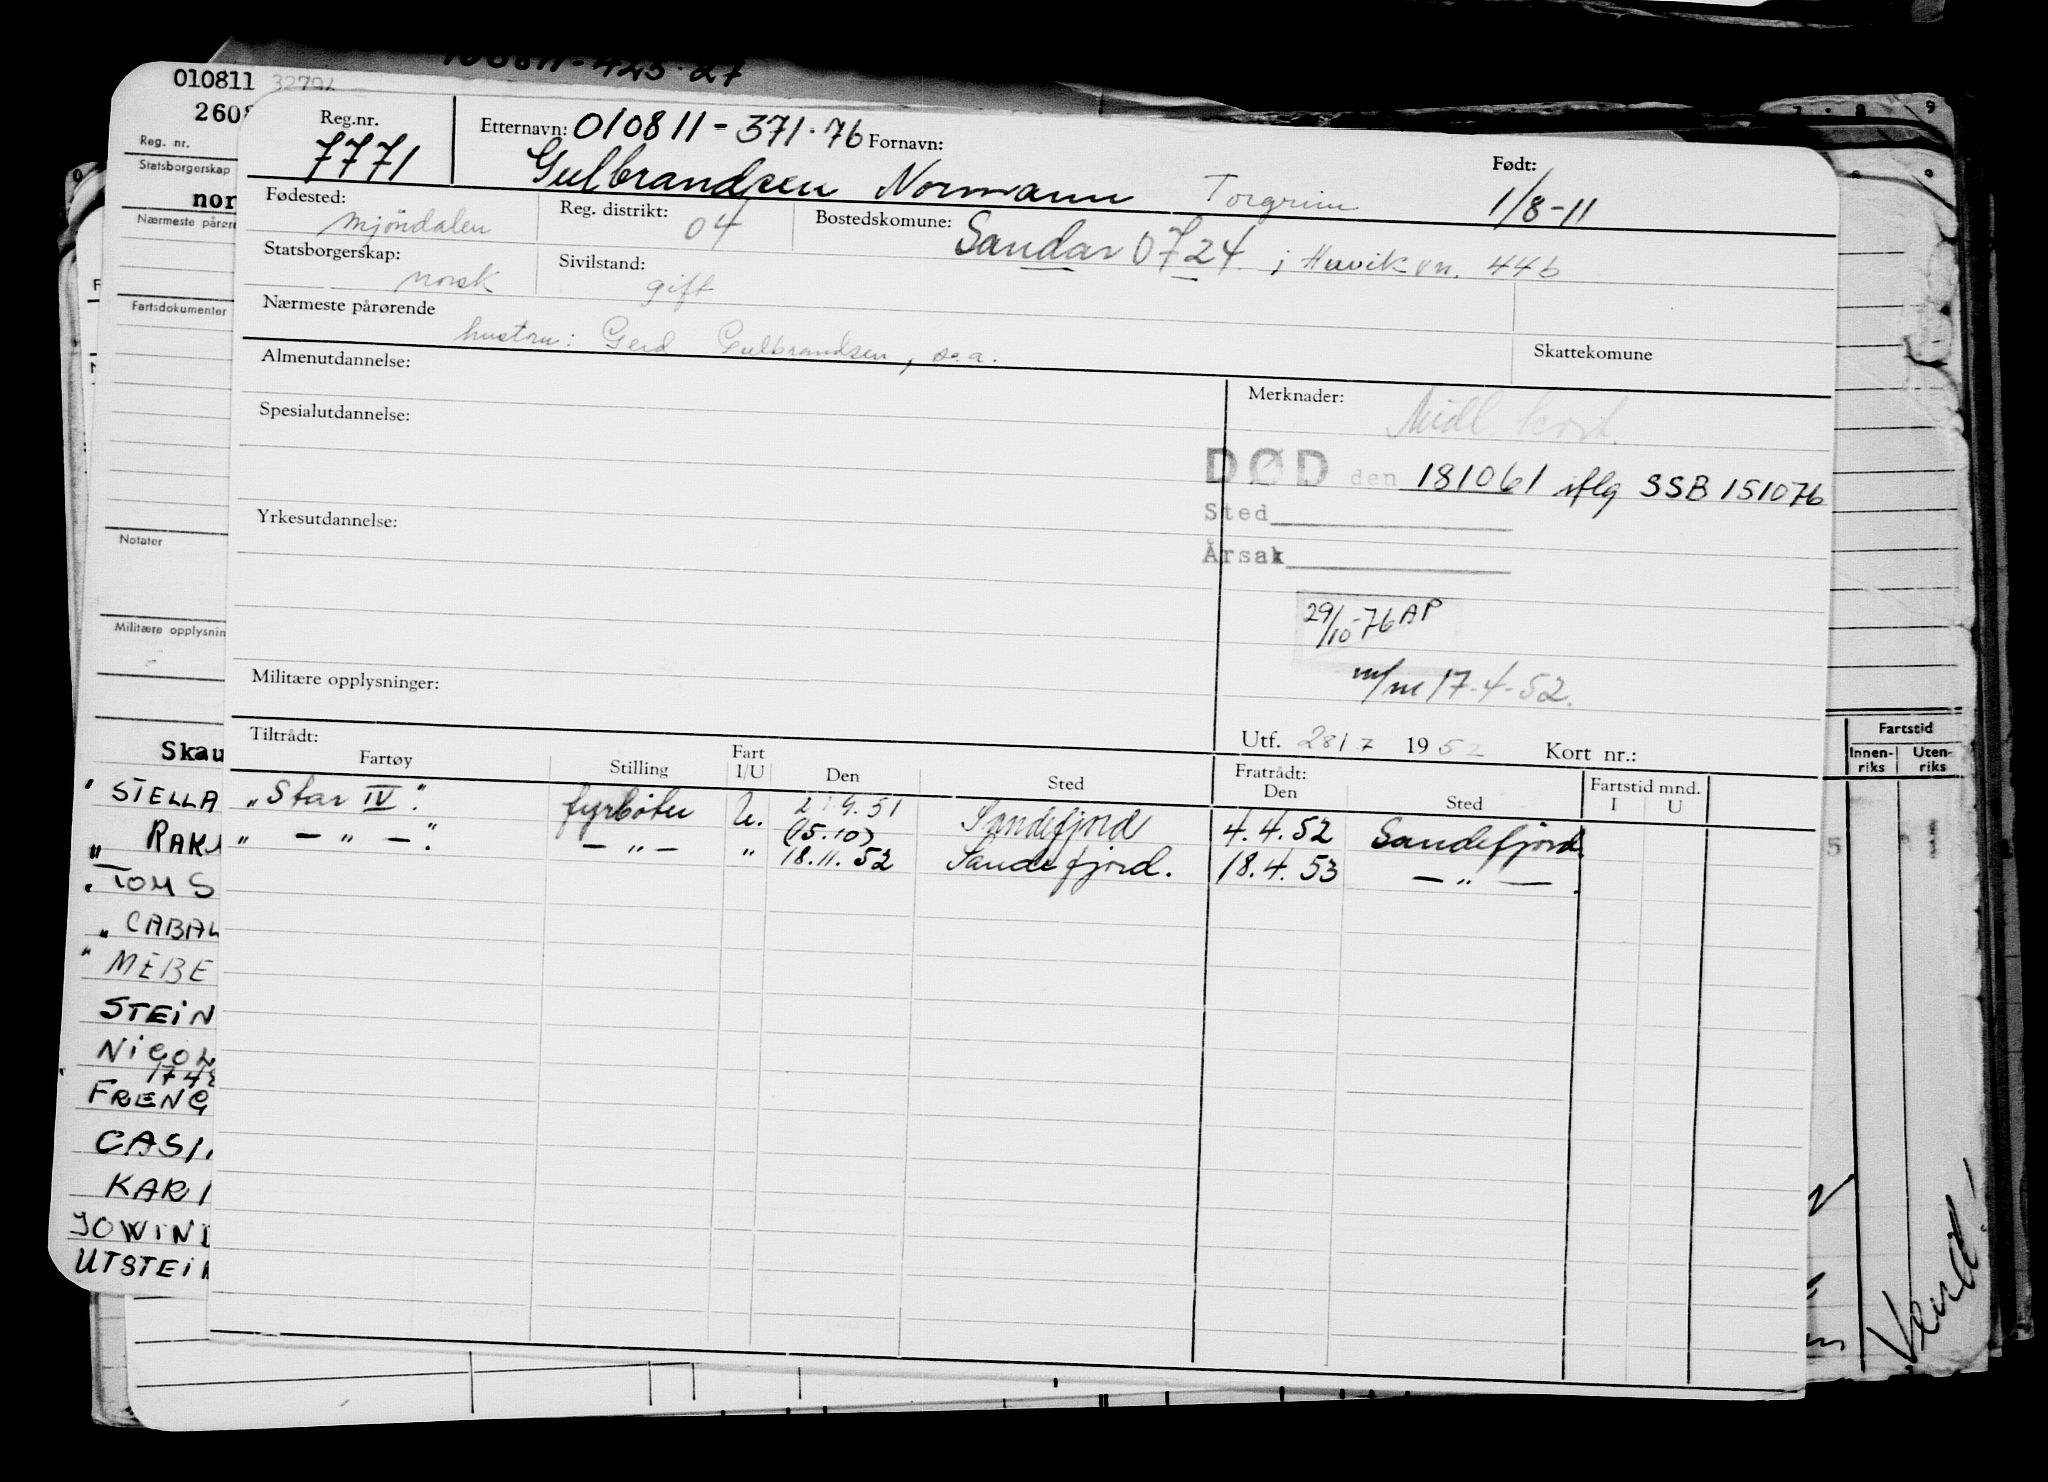 010811 32794
2608
Reg. nr.
Statsborgerskap
nor
Nærmeste pårøre
Fartsdokumenter
Notater
Militære opplysnin
Skau
" STELLA
RAK
" TOM S
" CABAL
" MEBE
STEIN
NICOL
FRENC
CASI
KARI
JOWIND
UTSTEIN
Reg.nr.
7771
Etternavn: 010811-371.76 Fornavn:
Gulbrandsen Normann Torgrim
Født:
1/8-11
Fødested:
Mjöndalen
Reg. distrikt:
04
Bostedskomune:
Sandar 0724 ; Huvik vn. 44b
Statsborgerskap:
norsk
Sivilstand:
gift
Nærmeste pårørende
hustru: Gerd Gulbrandsen, s.a.
Skattekomune
Almenutdannelse:
Spesialutdannelse:
Yrkesutdannelse:
Militære opplysninger:
Merknader:
Midl. kort.
DØD den 181061 iflg SSB 151076
Sted
Årsak
29/10-76 AP
m/m 17-4-52.
Utf. 28/7 1952 Kort nr.:
Tiltrådt:
Fartøy Stilling Fart I/U Den Sted
Fratrådt:
Den Sted
Fartstid mnd.
I U
"Star IV". fyrböter U. 9.51 Sandefjord 4.4.52 Sandefjord.
(15.10)
" — " —". — " — " 18.11.52 Sandefjord. 18.4.53 — " — .
Fartstid
Innen-riks Uten-riks
Vend!